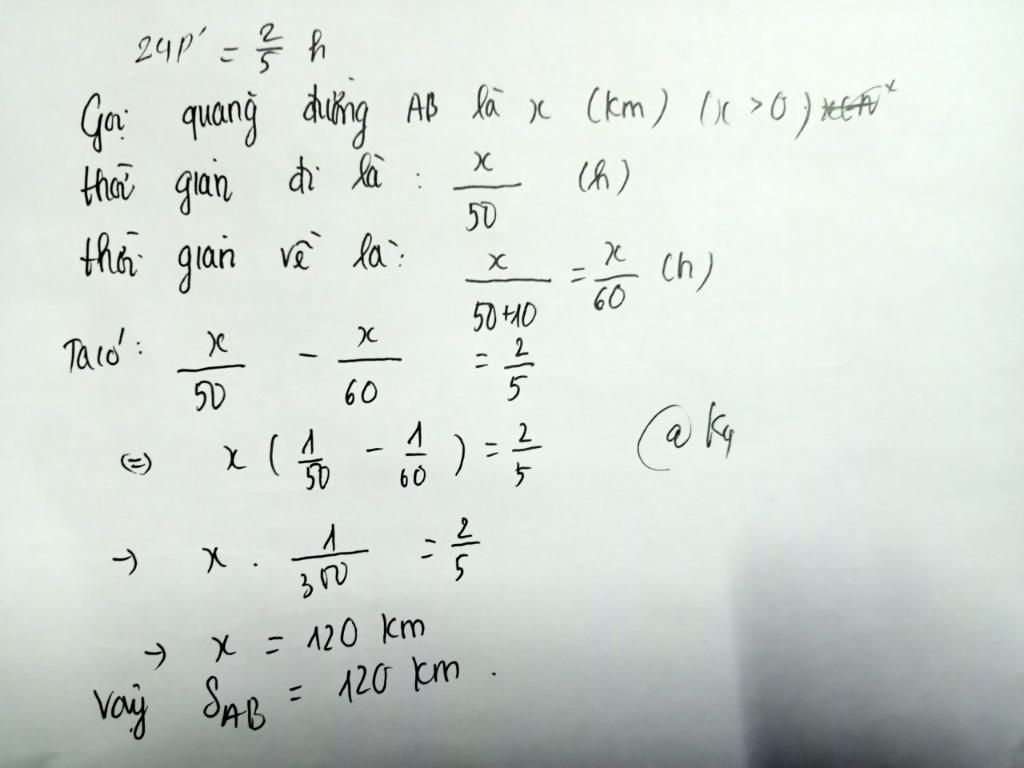 24p' = 2/5 h
Gọi quãng đường AB là x (km) (x > 0)
thời gian đi là : x/50 (h)
thời gian về là: x/(50+10) = x/60 (h)
Ta có: x/50 - x/60 = 2/5
(=) x ( 1/50 - 1/60 ) = 2/5
@ K4
→ x . 1/300 = 2/5
→ x = 120 km
Vậy SAB = 120 km .